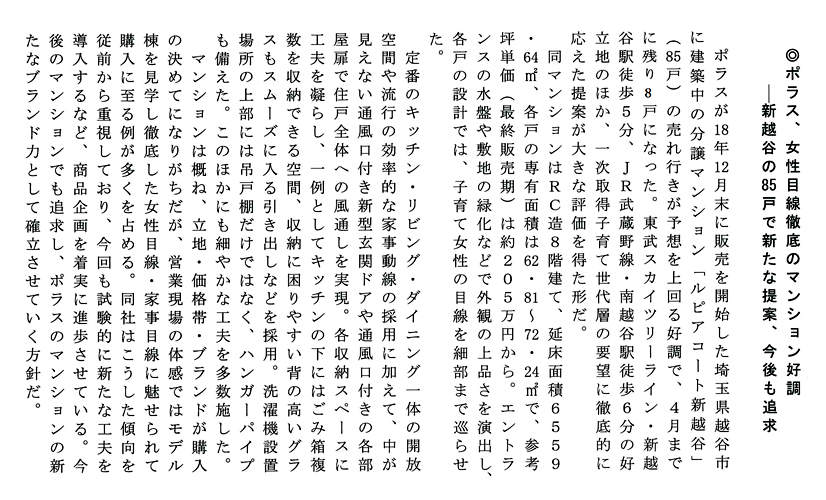 ◎ポラス、女性目線徹底のマンション好調
―新越谷の85戸で新たな提案、今後も追求
ポラスが18年12月末に販売を開始した埼玉県越谷市
に建築中の分譲マンション「ルピアコート新越谷」
（85戸）の売れ行きが予想を上回る好調で、４月まで
に残り８戸になった。東武スカイツリーライン・新越
谷駅徒歩５分、ＪＲ武蔵野線・南越谷駅徒歩６分の好
立地のほか、一次取得子育て世代層の要望に徹底的に
応えた提案が大きな評価を得た形だ。
同マンションはＲＣ造８階建て、延床面積６５５９
・64㎡、各戸の専有面積は62・81〜72・24㎡で、参考
坪単価（最終販売期）は約２０５万円から。エントラ
ンスの水盤や敷地の緑化などで外観の上品さを演出し、
各戸の設計では、子育て女性の目線を細部まで巡らせ
た。
定番のキッチン・リビング・ダイニング一体の開放
空間や流行の効率的な家事動線の採用に加えて、中が
見えない通風口付き新型玄関ドアや通風口付きの各部
屋扉で住戸全体への風通しを実現。各収納スペースに
工夫を凝らし、一例としてキッチンの下にはごみ箱複
数を収納できる空間、収納に困りやすい背の高いグラ
スもスムーズに入る引き出しなどを採用。洗濯機設置
場所の上部には吊戸棚だけではなく、ハンガーパイプ
も備えた。このほかにも細やかな工夫を多数施した。
マンションは概ね、立地・価格帯・ブランドが購入
の決めてになりがちだが、営業現場の体感ではモデル
棟を見学し徹底した女性目線・家事目線に魅せられて
購入に至る例が多くを占める。同社はこうした傾向を
従前から重視しており、今回も試験的に新たな工夫を
導入するなど、商品企画を着実に進歩させている。今
後のマンションでも追求し、ポラスのマンションの新
たなブランド力として確立させていく方針だ。